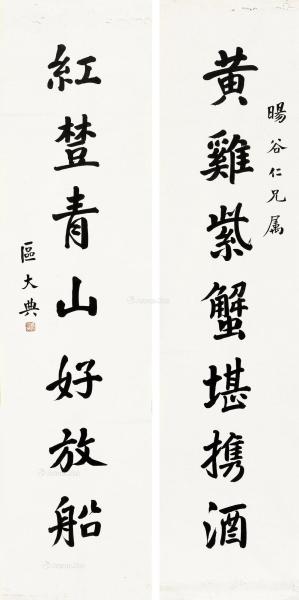 黄雞紫蟹堪携酒
暘谷仁兄属
紅樹青山好放船
區大典